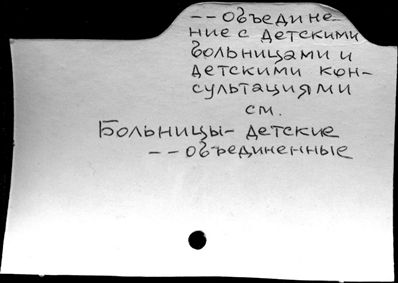 -- объедине-
ние с детскими
больницами и
детскими кон-
сультациями
см.
Больницы- детские
-- объединенные